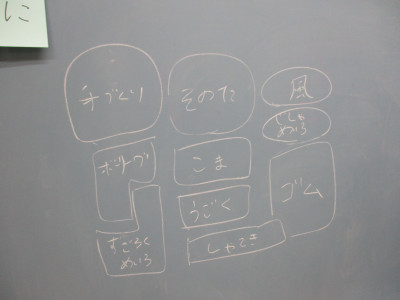 に
手づくり
そのた
風
めいろ
こま
ゴム
うごく
すごろく
めいろ
しゃてき